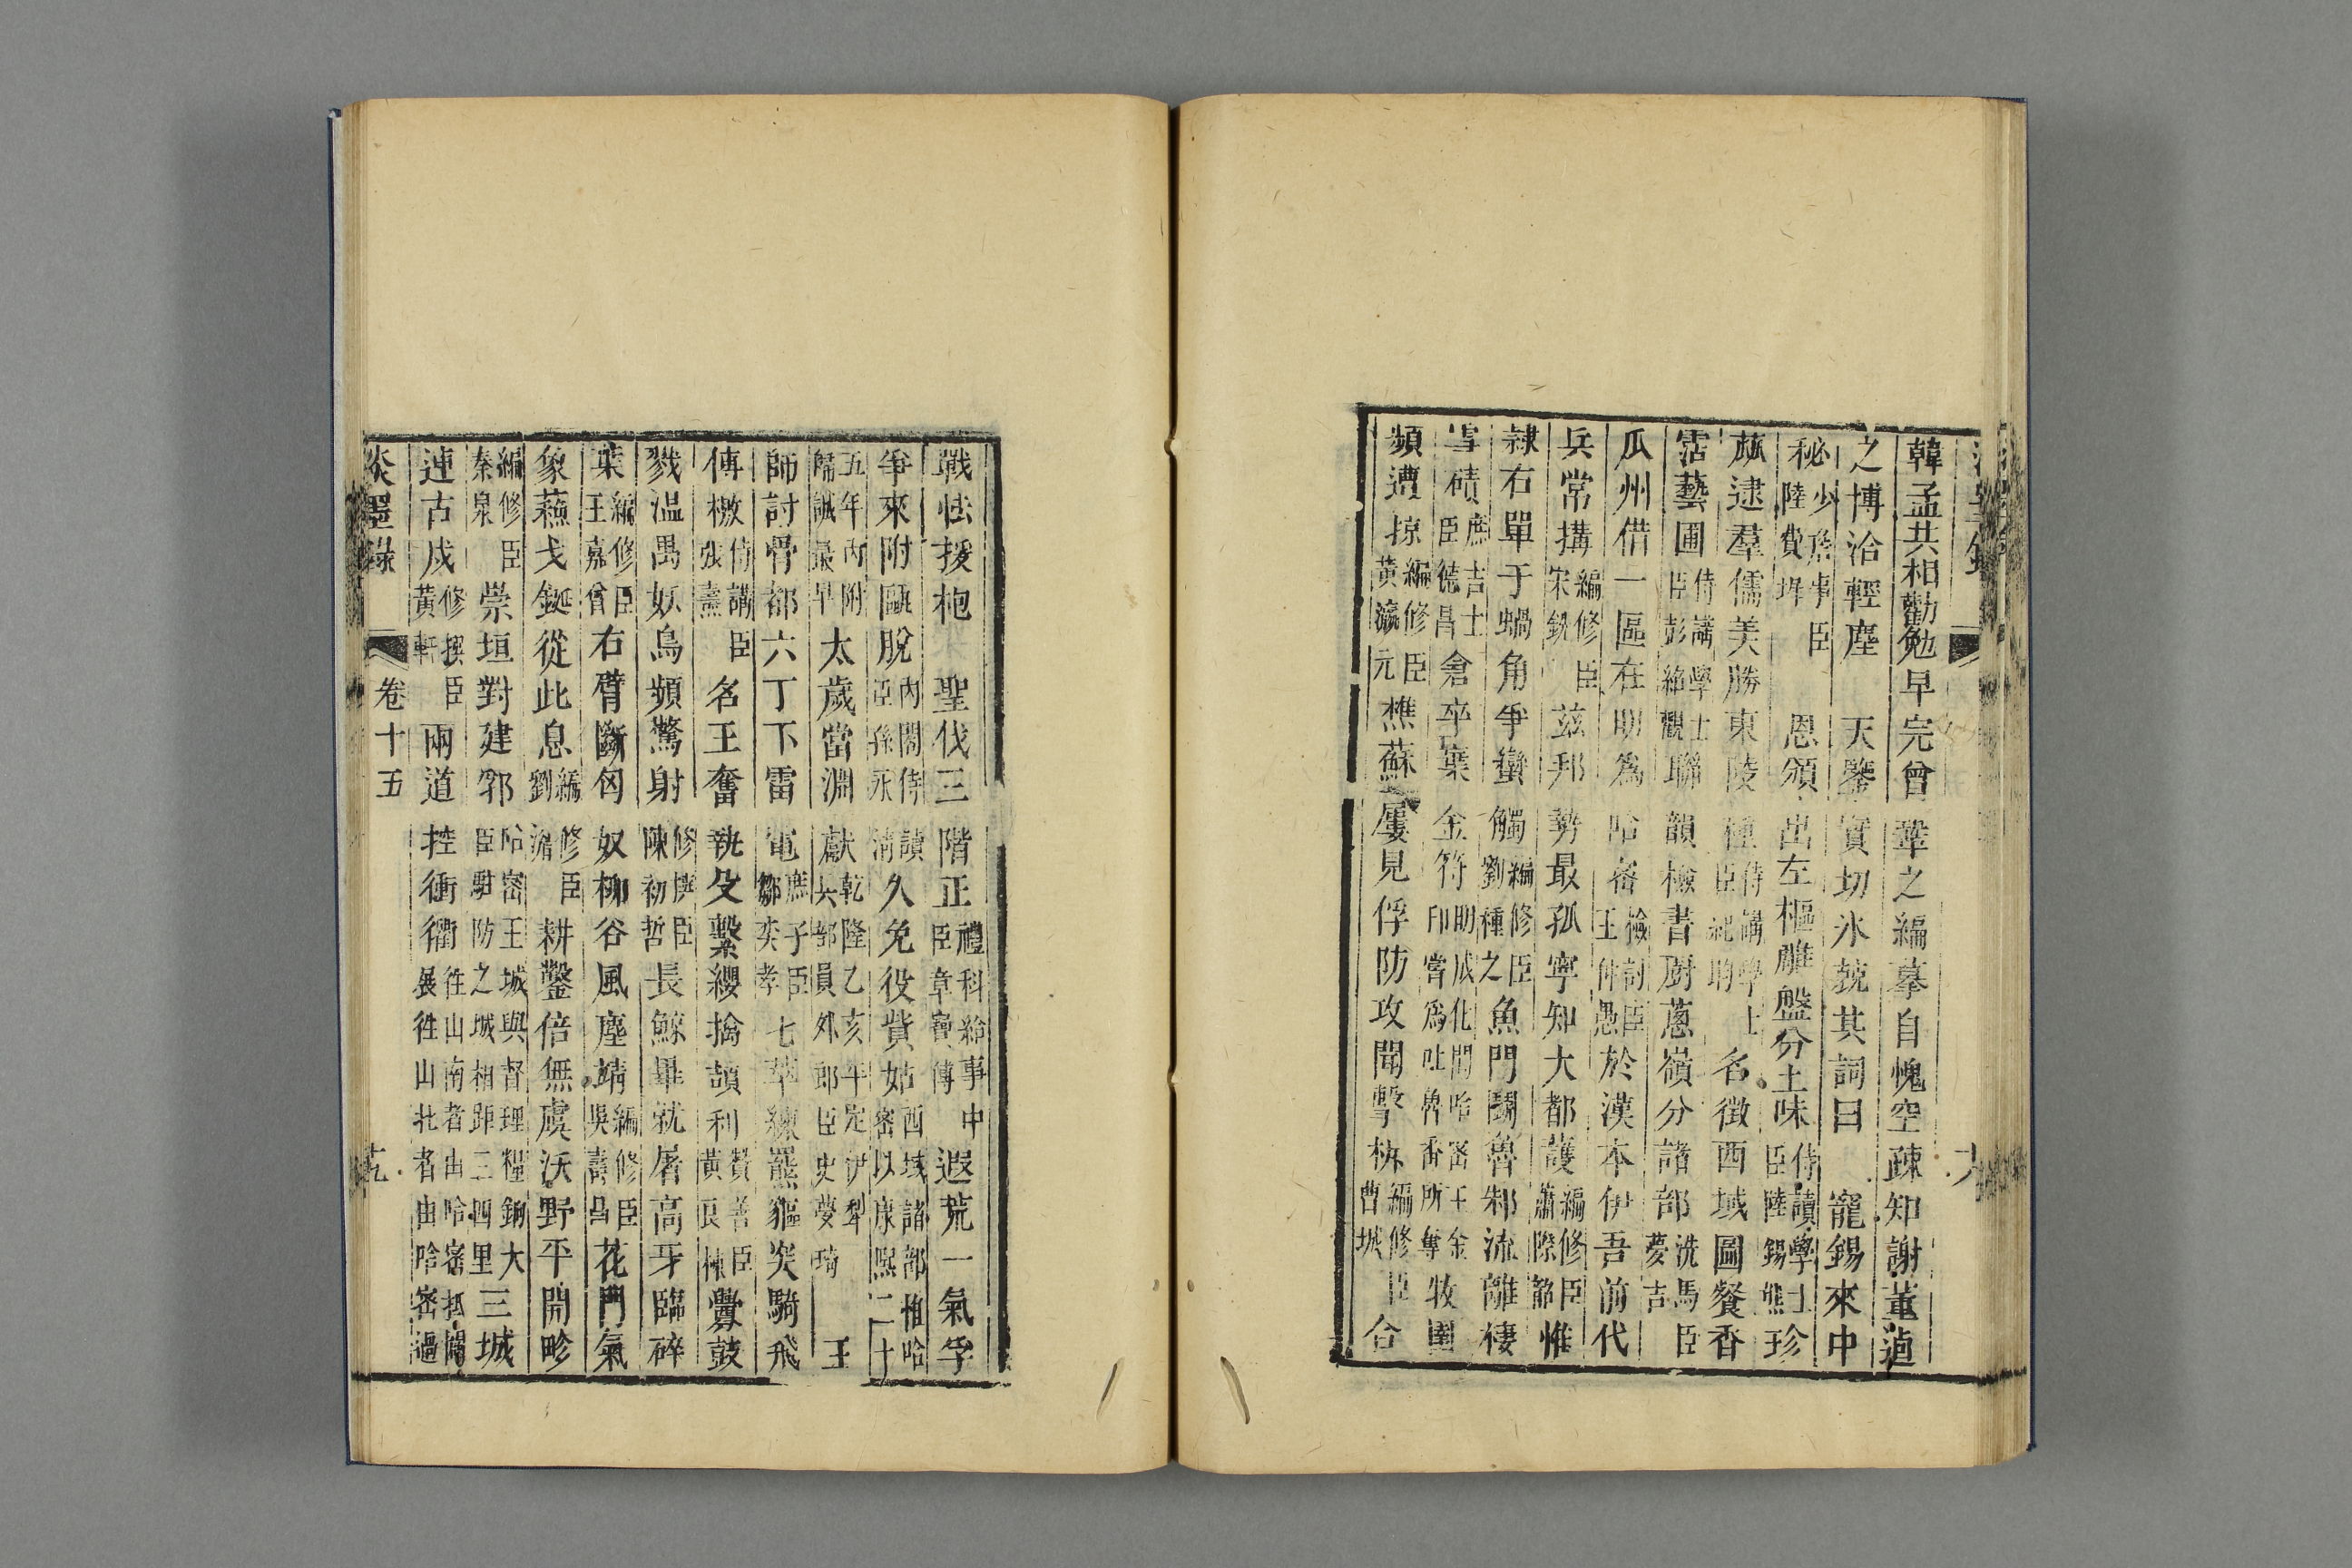 韓孟共相勸勉早完曾鞏之編摹自愧空疎知謝董逌
之博洽輕塵 天鑒實切氷兢其詞曰 寵錫來中
秘少詹事臣陸費墀 恩頒出左樞雕盤分土味侍讀學士臣陸錫熊珍
蓏逮羣儒美勝東陵種侍講學士臣紀昀名徵西域圖餐香
霑藝圃侍講學士臣彭紹觀聯韻檢書廚蔥嶺分諸部洗馬臣夢吉
瓜州借一區在明爲哈密檢討臣王仲愚於漢本伊吾前代
兵常搆編修臣宋銑茲邦勢最孤寧知大都護編修臣蕭際韶惟
隷右單于蝸角爭蠻觸編修臣劉種之魚門鬬魯邾流離棲
雪磧庶吉士臣德昌倉卒棄金符明成化間哈密王金印嘗爲吐魯番所奪牧圉
頻遭掠編修臣黃瀛元樵蘇屢見俘防攻聞擊柝編修臣曹城合
戰怯援枹 聖伐三階正禮科給事中臣章寶傳遐荒一氣孚
爭來附甌脫內閣侍讀臣孫永清久免役貲姑西域諸部惟哈密以康熙二十
五年內附歸誠最早太歲當淵獻乾隆乙亥年定伊犁兵部員外郎臣史夢琦 王
師討骨都六丁下雷電庶子臣鄒奕孝七萃練羆貙突騎飛
傳檄侍講臣張燾名王奮執殳繫纓擒頡利贊善臣黃良棟釁鼓
戮温禺妖鳥頻驚射修撰臣陳初哲長鯨畢就屠高牙臨碎
葉編修臣王嘉曾右臂斷匈奴柳谷風塵靖編修臣吳壽昌花門氣
象蘓戈鋋從此息編修臣劉瀹耕鑿倍無虞沃野平開畛
編修臣秦泉崇垣對建郛哈密王城與督理糧餉大臣駐防之城相距三四里三城
連古戍修撰臣黃軒兩道控衝衢往山南者由哈密抵闢展往山北者由哈密過
炎墨錄 卷十五 十九